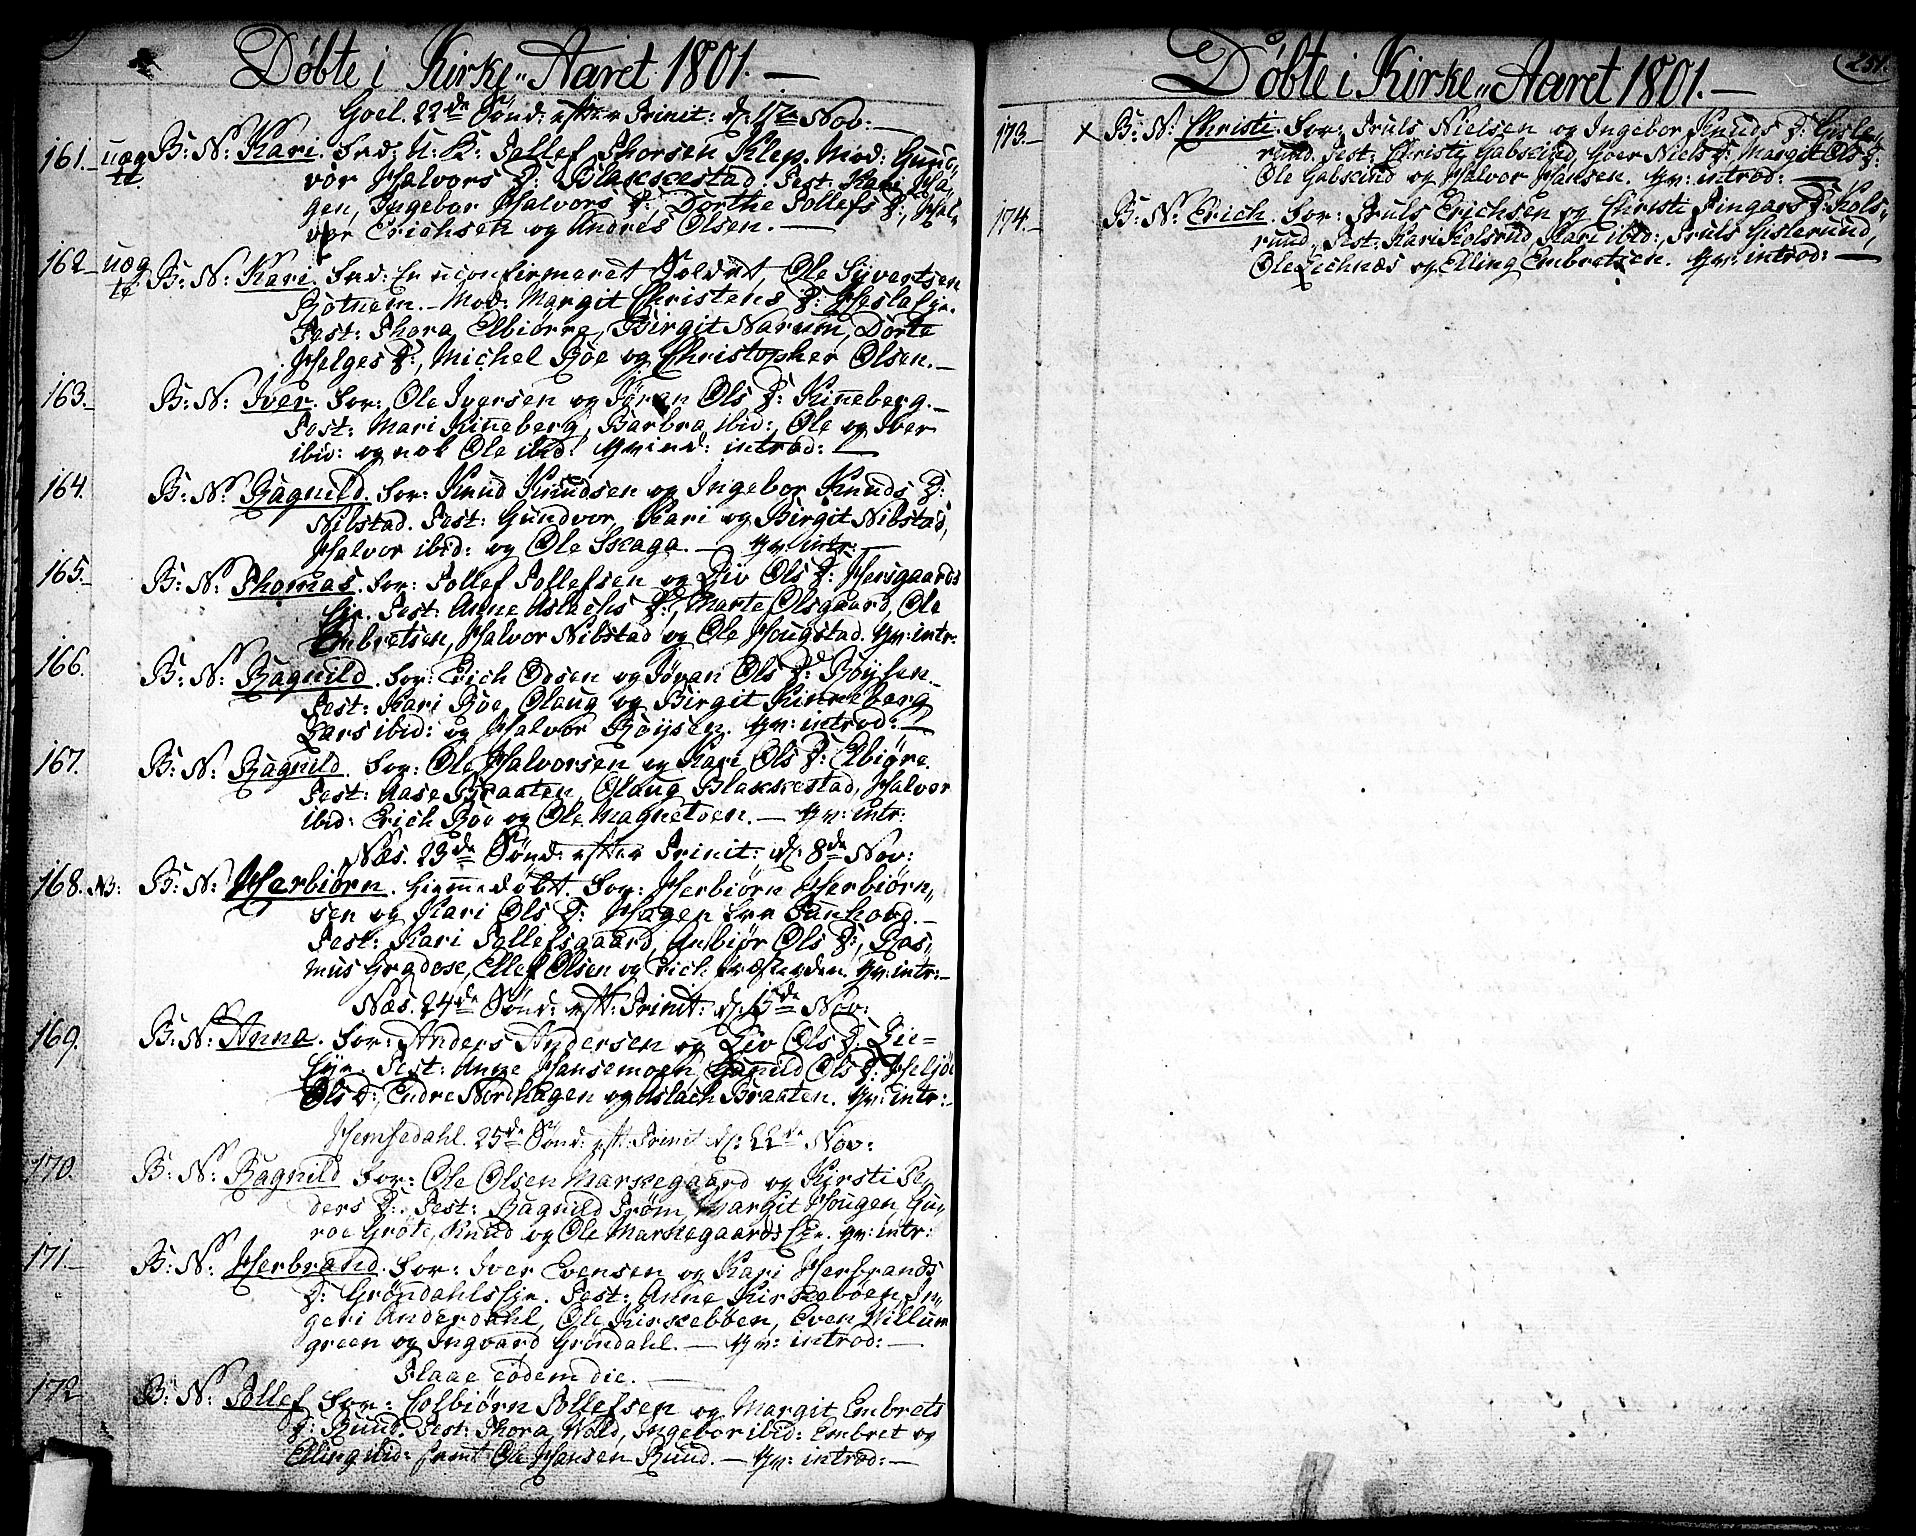 Døbte i Kirke-Aaret 1801.
Goel. 22de Sønd: efter Trinit: d: 1ste Nov:
161. uæg B: N: Kari. Fad: U: K: Tollef Thorsen Klep. Mod: Gun-
te. vor Halvors D: Blakkestad. Test: Kari Ha-
gen, Ingebor Halvors D:, Dorthe Tollefs D:, Hal-
vor Erichsen og Andres Olsen.
162. uæg B: N: Kari. Fad: En uconfirmeret Soldat, Ole Syvertsen
te Rotnem. Mod: Margit Christens D: Heslaeje.
Test: Thora Elbiørre, Birgit Narum, Dorte
Helges D:, Michel Røe og Christopher Olsen.
163. B: N: Iver. For: Ole Iversen og Jøran Ols D: Kinneberg.
Test: Mari Kinneberg, Barbra ibid:, Ole og Iver
ibid: og nok Ole ibid: Qvind: introd:
164. B: N: Ragnild. For: Knud Knudsen og Ingebor Knuds D:
Nibstad. Test: Gundvor, Kari og Birgit Nibstad,
Halvor ibid: og Ole Skaga. Qv: intr:
165. B: N: Thomas. For: Tollef Tollefsen og Liv Ols D: Hersgaards
Eje. Test: Anne Aslachs D:, Marte Olsgaard, Ole
Embretsen, Halvor Nibstad og Ole Hougstad. Qv: intr:
166. B: N: Ragnild. For: Erich Odsen og Jøran Ols D: Røysen.
Test: Kari Røe, Olaug og Birgit Kinneberg
Lars ibid: og Halvor Røysen. Qv: introd:
167. B: N: Ragnild. For: Ole Halvorsen og Kari Ols D: Elbiøre.
Test: Aase Braaten, Olaug Blakkestad, Halvor
ibid: Erich Røe og Ole Magnetoen. Qv: intr:
Næs. 23de Sønd: efter Trinit: d: 8de Nov:
168. NB: B: N: Herbiørn. hjemmedøbt. For: Herbiørn Herbiørn-
sen og Kari Ols D: Hagen fra Tunhovd.
Test: Kari Tollefsgaard, Anbiør Ols D:, Ras-
mus Gradose, Ellef Olsen og Erich Qv: intr:
Næs. 24de Sønd: eft: Trinit: d: 15de Nov:
169. B: N: Anna. For: Anders Andersen og Liv Ols D: Lie-
Eje. Test: Anne Hansemoen, Gunild Ols D:
Ols D:, Endre Nordhagen og Aslach Braaten. Qv: intr:
Hemsedahl. 25de Sønd: eft: Trinit d: 22de Nov:
170. B: N: Ragnild For: Ole Olsen Markegaard og Kirsti Pe-
ders D:. Test: Ragnild Trøm, Margit Hougen, Gu-
roe Grøte, Knud og Ole Markegaards Eje. Qv: intr:
171. B: N: Herbrand. For: Iver Evensen og Kari Herbrands
D: Grøndahls Eje. Test: Anne Kirkebøen, In-
geri Anderdahl, Ole Kirkebøen, Even Villum
green og Ingvard Grøndahl. Qv: introd:
Flaae eodem die.
172 B: N: Tollef For: Colbiørn Tollefsen og Margit Embrets
D: Ruud. Test: Thora Wold, Ingebor ibid: Embret og
Elling ibid: samt Ole Hansen Ruud. Qv: introd:
251.
Døbte i Kirke-Aaret 1801.
173. x B: N: Christi. For: Truls Nielsen og Ingebor Knuds D: Gisle-
rud. Test: Christi Gabskind, Goer Niels D:, Margit Ols D:
Ole Gabskind og Halvor Hansen. Qv: introd:
174. B: N: Erich. For: Truls Erichsen og Christi Tingars D: Kols-
rund. Test: Kari Kolsrud, Kari ibid:, Truls Gislerund,
Ole Eichnæs og Elling Embretsen. Qv: introd: